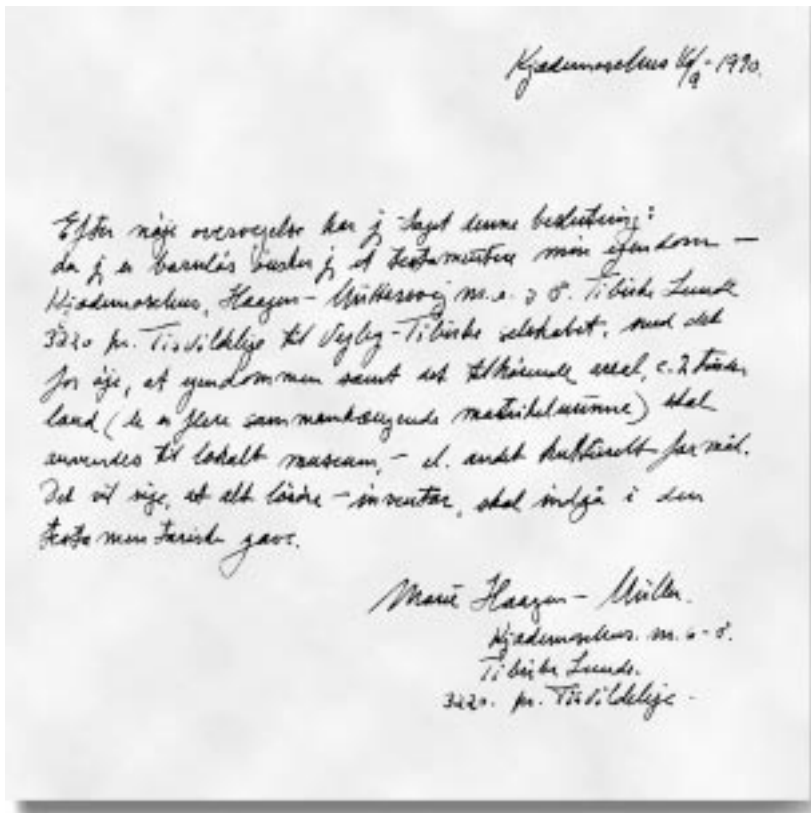 Kjædemosehus 16/9-1990.
Efter nøje overvejelse har jeg taget denne beslutning:
da jeg er barnløs ønsker jeg at testamentere min ejendom –
Kjædemosehus, Haagen-Müllersvej nr. 6 & 8. Tibirke Lunde
3220 pr. Tisvildeleje til Vejby-Tibirke selskabet, med det
for øje, at ejendommen samt det tilhørende areal, c. 2 tønder
land (de er flere sammenhængende matrikelnumre) skal
anvendes til lokalt museum, – el. andet kulturelt formål.
Det vil sige, at alt løsøre – inventar, skal indgå i den
testamentariske gave.
Marie Haagen-Müller.
Kjædemosehus. nr. 6-8.
Tibirke Lunde.
3220. pr. Tisvildeleje-